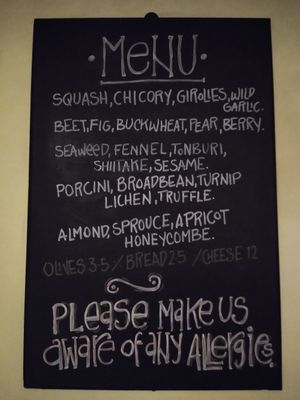 ·MENU·
SQUASH, CHICORY, GIROLLES, WILD
GARLIC.
BEET, FIG, BUCKWHEAT, PEAR, BERRY.
SEAWEED, FENNEL, TONBURI,
SHIITAKE, SESAME.
PORCINI, BROADBEAN, TURNIP
LICHEN, TRUFFLE.
ALMOND, SPROUCE, APRICOT
HONEYCOMBE.
OLIVES 3.5 / BREAD 2.5 / CHEESE 12
PLEASE MAKE US
aware of any Allergies.